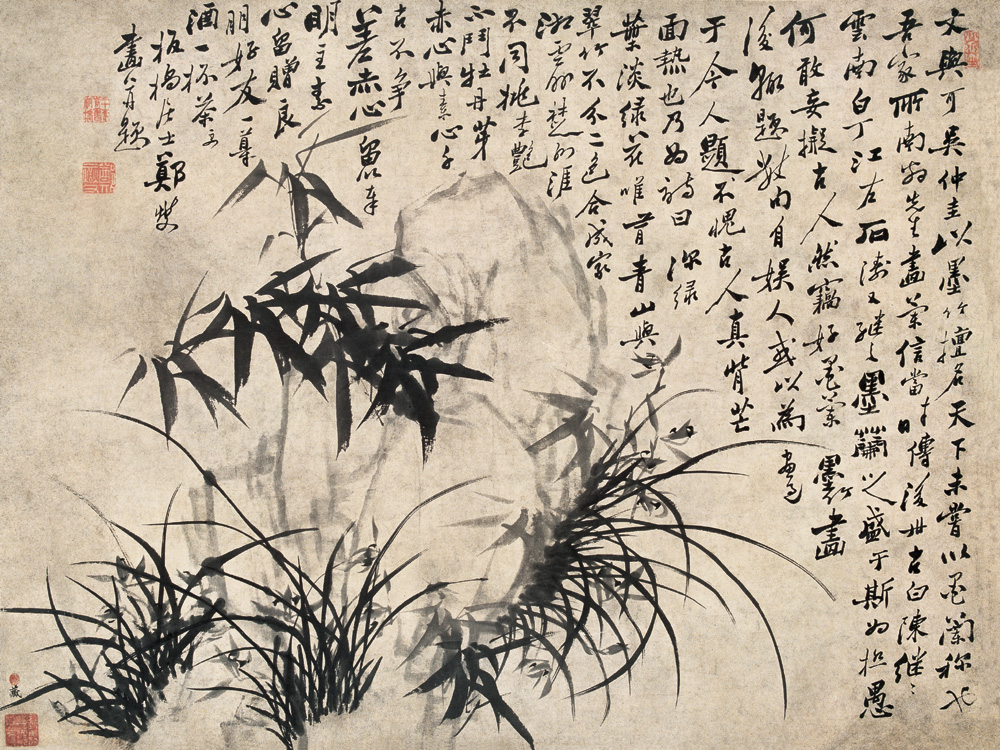 文與可吳仲圭以墨竹擅名天下未嘗以墨蘭称也
吾家所南翁先生畫蘭信當時傳後世古白陳継之
雲南白丁江左石濤又継之墨蘭之盛于斯为極愚
何敢妄擬古人然竊好墨蘭墨竹畫
後輒題數内自娱人或以為
于今人顯不愧古人真背芒
面熱也乃为詩曰深绿
葉淡绿花唯肯青山與
翠竹不分二色合成家
湘雲
不同桃李艷
不鬥牡丹芽
赤心與素心子
古不争
差赤心留以奉
明主素
心留贈良
朋好友一尊
酒一杯茶
板橋居士鄭燮
畫并題
藏